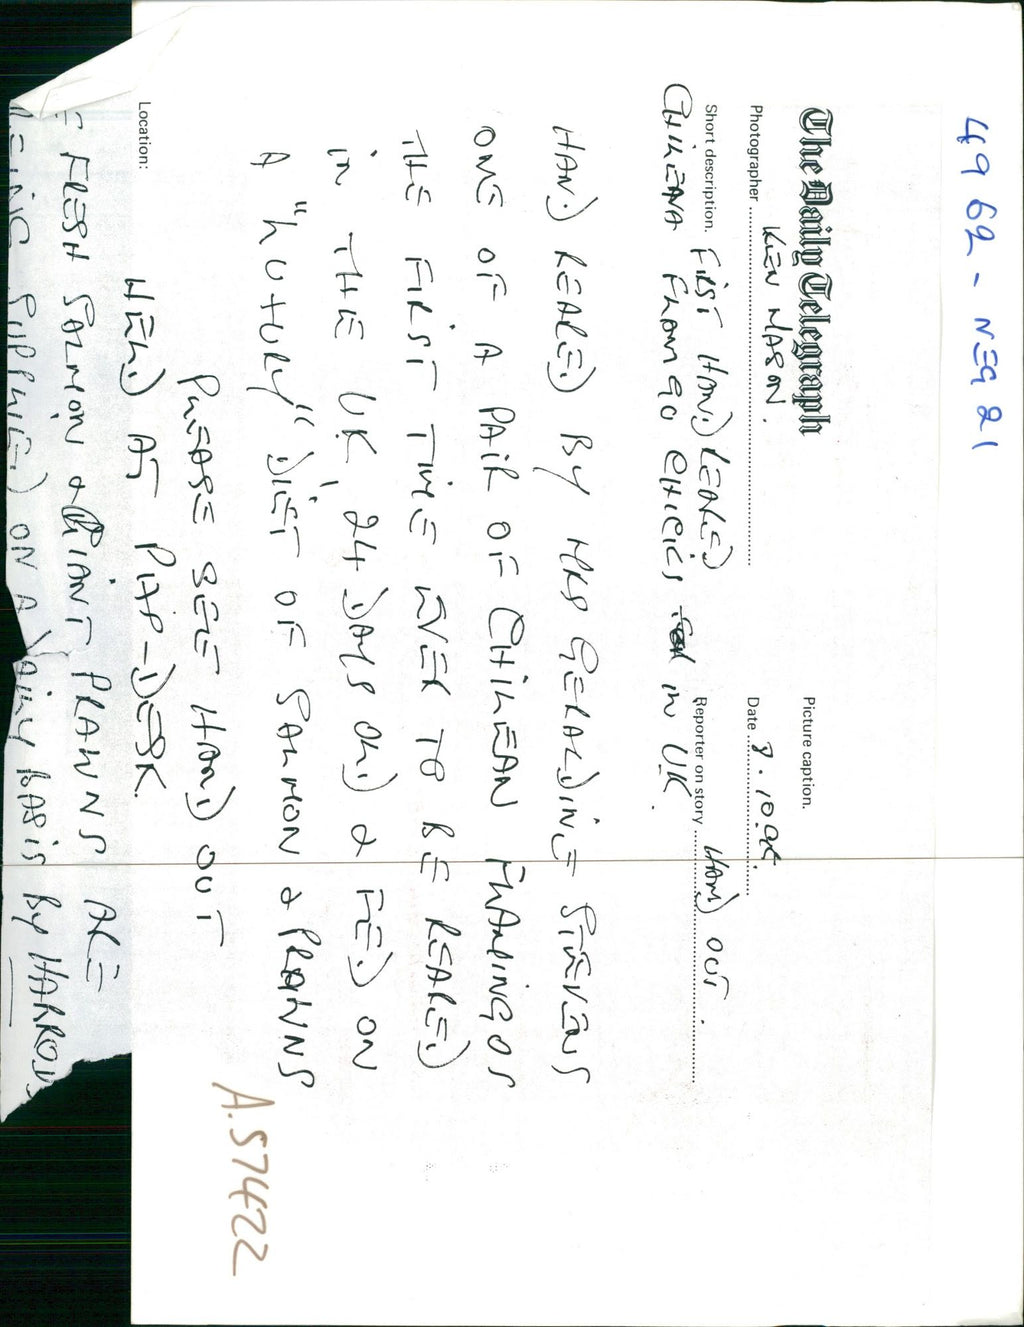 49 62 - NEG 21
The Daily Telegraph
Picture caption.
Photographer KEN MASON.
Date 8.10.
Short description. FIRST HAND REARED
Reporter on story HAND OUT.
CHILEAN FLAMINGO CHICKS IN UK.
HAND REARED BY MRS GERALDINE STEVENS
ONE OF A PAIR OF CHILEAN FLAMINGOS
THE FIRST TIME EVER TO BE REARED
IN THE UK, 24 DAYS OLD & FED ON
A "LUXURY" DIET OF SALMON & PRAWNS
PLEASE SEE HAND OUT
HELD AT PIX-DESK.
Location:
FRESH SALMON & GIANT PRAWNS ARE
BEING SUPPLIED ON A DAILY BASIS BY HARRODS
A.57422